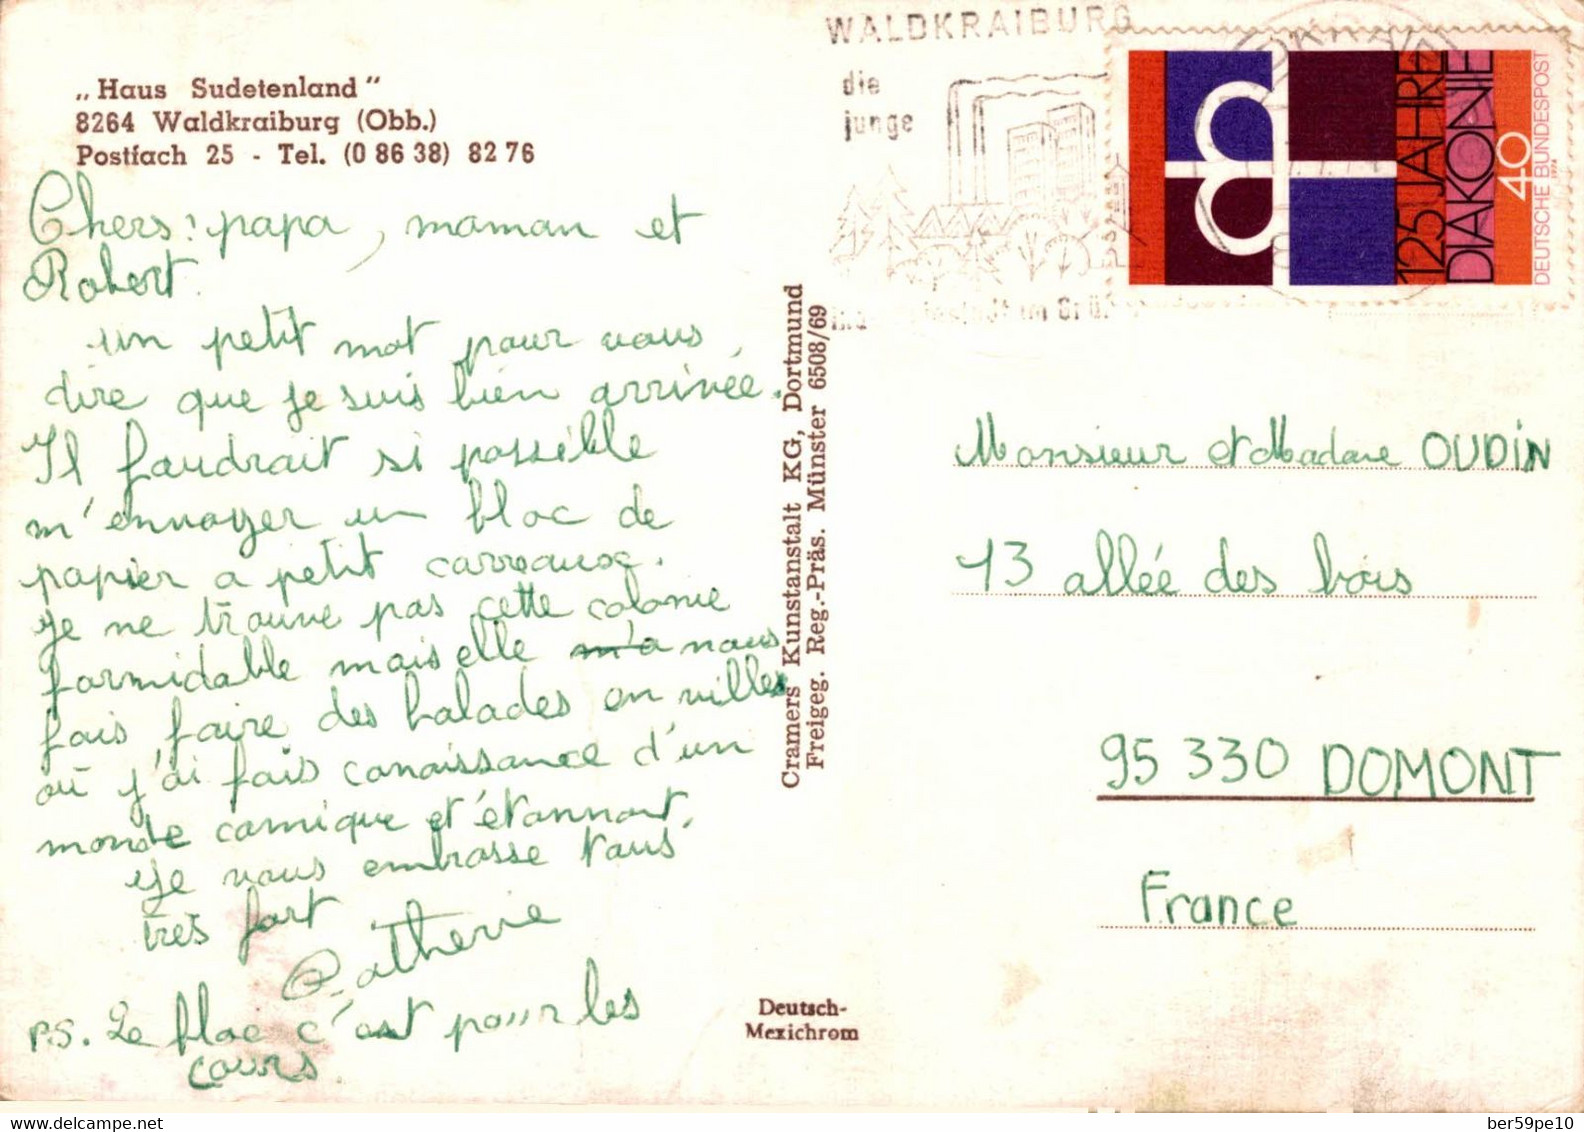 „Haus Sudetenland"
8264 Waldkraiburg (Obb.)
Postfach 25 - Tel. (0 86 38) 82 76
Chers : papa, maman et
Robert.
un petit mot pour vous
dire que je suis bien arrivée.
Il faudrait si possible
m'envoyer un bloc de
papier a petit carreaux.
Je ne trouve pas cette colonie
formidable mais elle m'a nous
fais faire des balades en villes
où j'ai fais conaissance d'un
monde comique et étonnant.
Je vous embrasse tous
très fort
Catherine
P.S. Le bloc c'est pour les
cours.
Cramers Kunstanstalt KG, Dortmund
Freigeg. Reg.-Präs. Münster 6508/69
Deutsch-
Mexichrom
WALDKRAIBURG
die
junge
im Grü
125 JAHRE
DIAKONIE
40
DEUTSCHE BUNDESPOST
1974
Monsieur et Madame OUDIN
13 allée des bois
95 330 DOMONT
France
ber59pe10